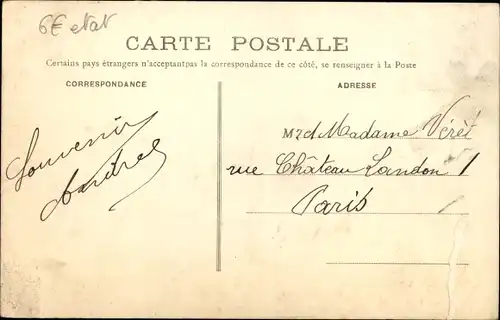 6€ etat
CARTE POSTALE
Certains pays étrangers n'acceptantpas la correspondance de ce côté, se renseigner à la Poste
CORRESPONDANCE
ADRESSE
Souvenir
Andrée
Mzd Madame Vérèt
rue Château Landon 1
Paris